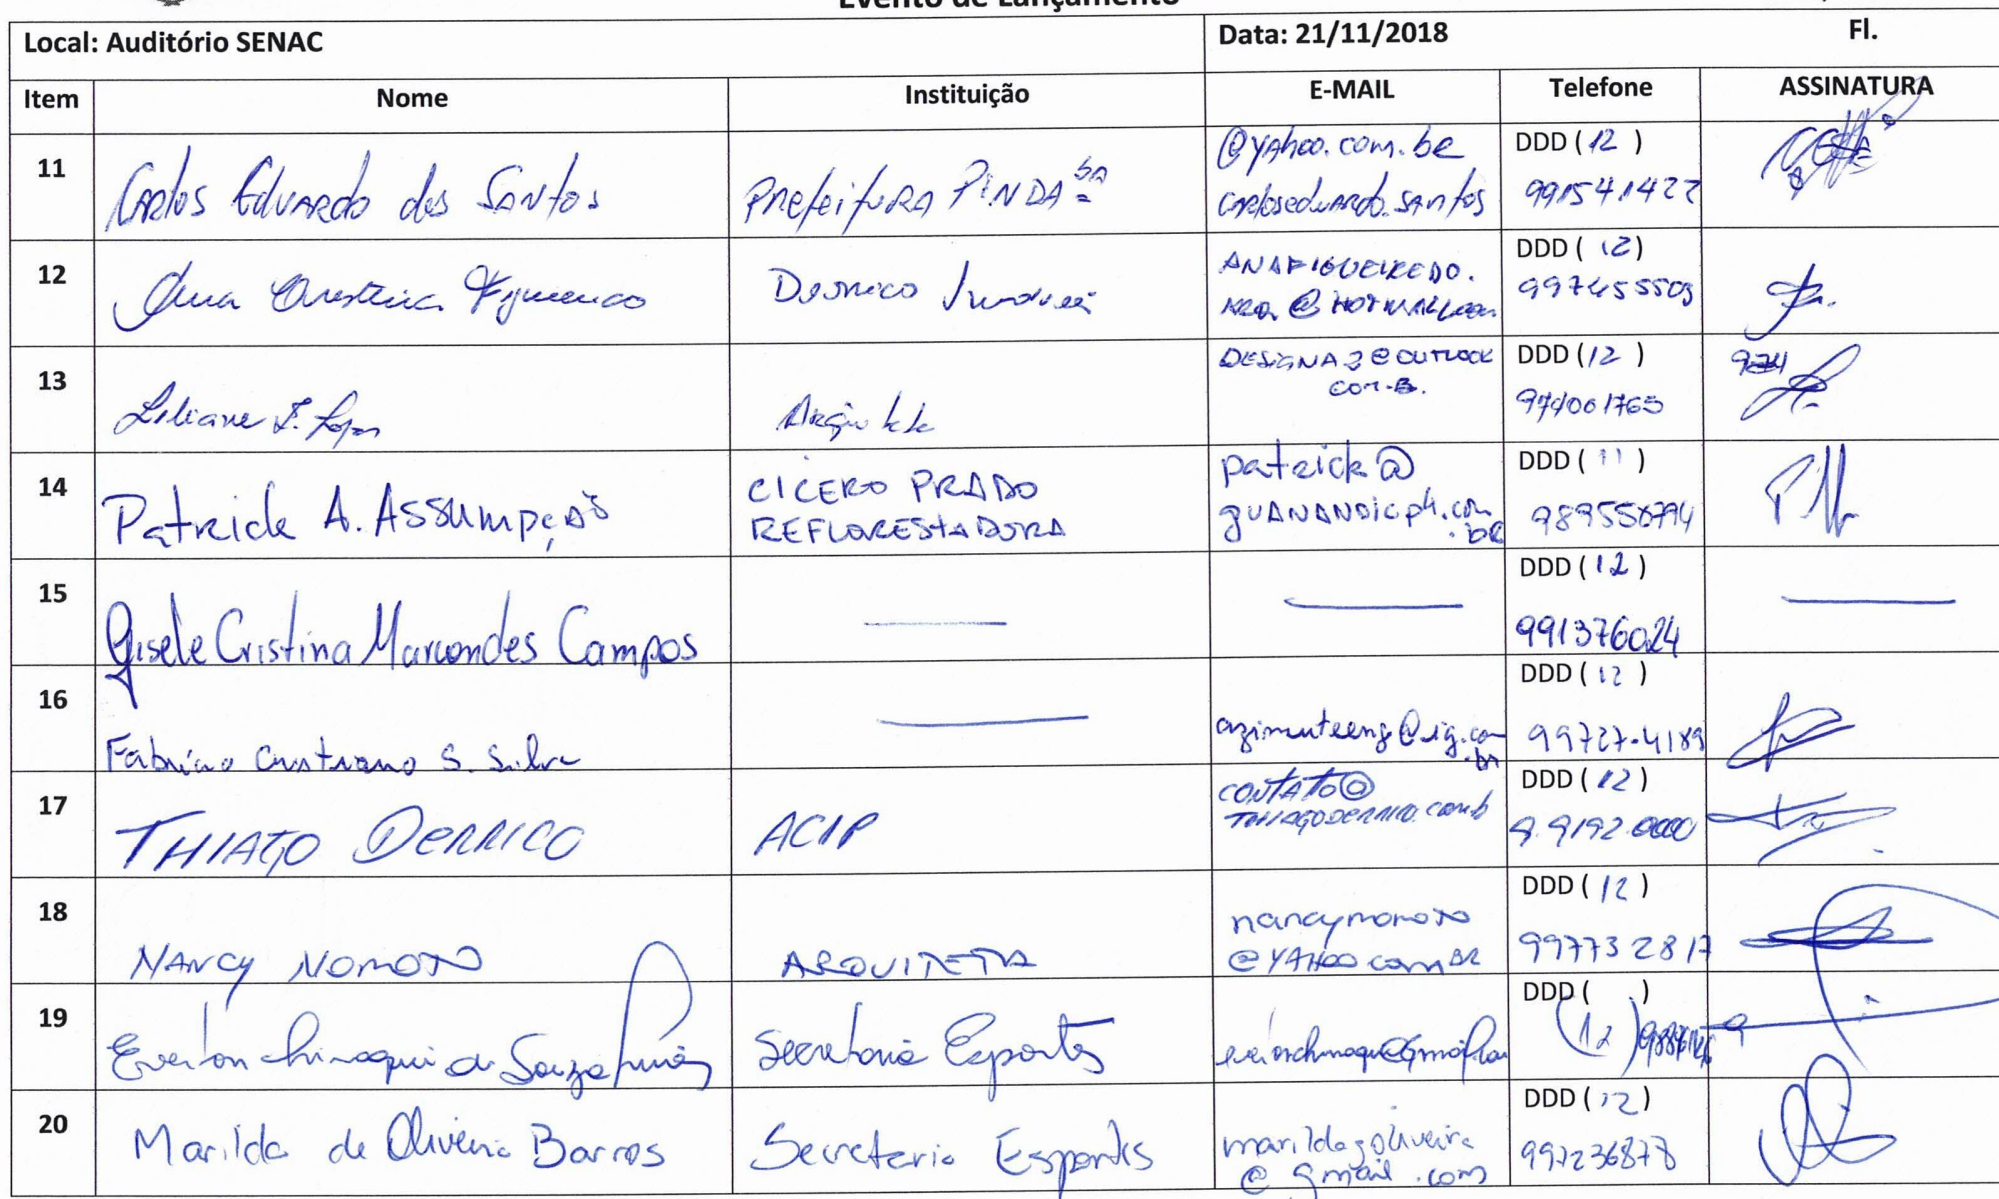 Evento de Lançamento
Local: Auditório SENAC Data: 21/11/2018 Fl.
Item Nome Instituição E-MAIL Telefone ASSINATURA
11 Carlos Eduardo dos Santos Prefeitura PINDA @yahoo.com.be DDD (12)
carloseduardo.santos 991541422
12 Ana Cristina Figueiredo ANAFIGUEIREDO. DDD (12)
ARQ@HOTMAIL.com 997455503
13 Liliane F. Lopes DESIGNA3@OUTLOOK DDD (12)
974001765
14 Patrick A. Assumpção CICERO PRADO patrick@ DDD (11)
REFLORESTADORA .br
15 Gisele Cristina Marcondes Campos DDD (12)
991376024
16 Fabricio Cristiano S. Silva azimuteeng@ig.com DDD (12)
.br 99727-4189
17 THIAGO DERRICO ACIP CONTATO@ DDD (12)
THIAGODERRICO.com.b 9.9192.0000
18 NANCY NOMOTO ARQUITETA nancynomoto DDD (12)
@YAHOO.com BR 997732817
19 Everton Chinaqui de Souza Secretaria Esportes DDD ( )
(12)
20 Marilda de Oliveira Barros Secretaria Esportes marildagoliveira DDD (12)
@gmail.com 997236878